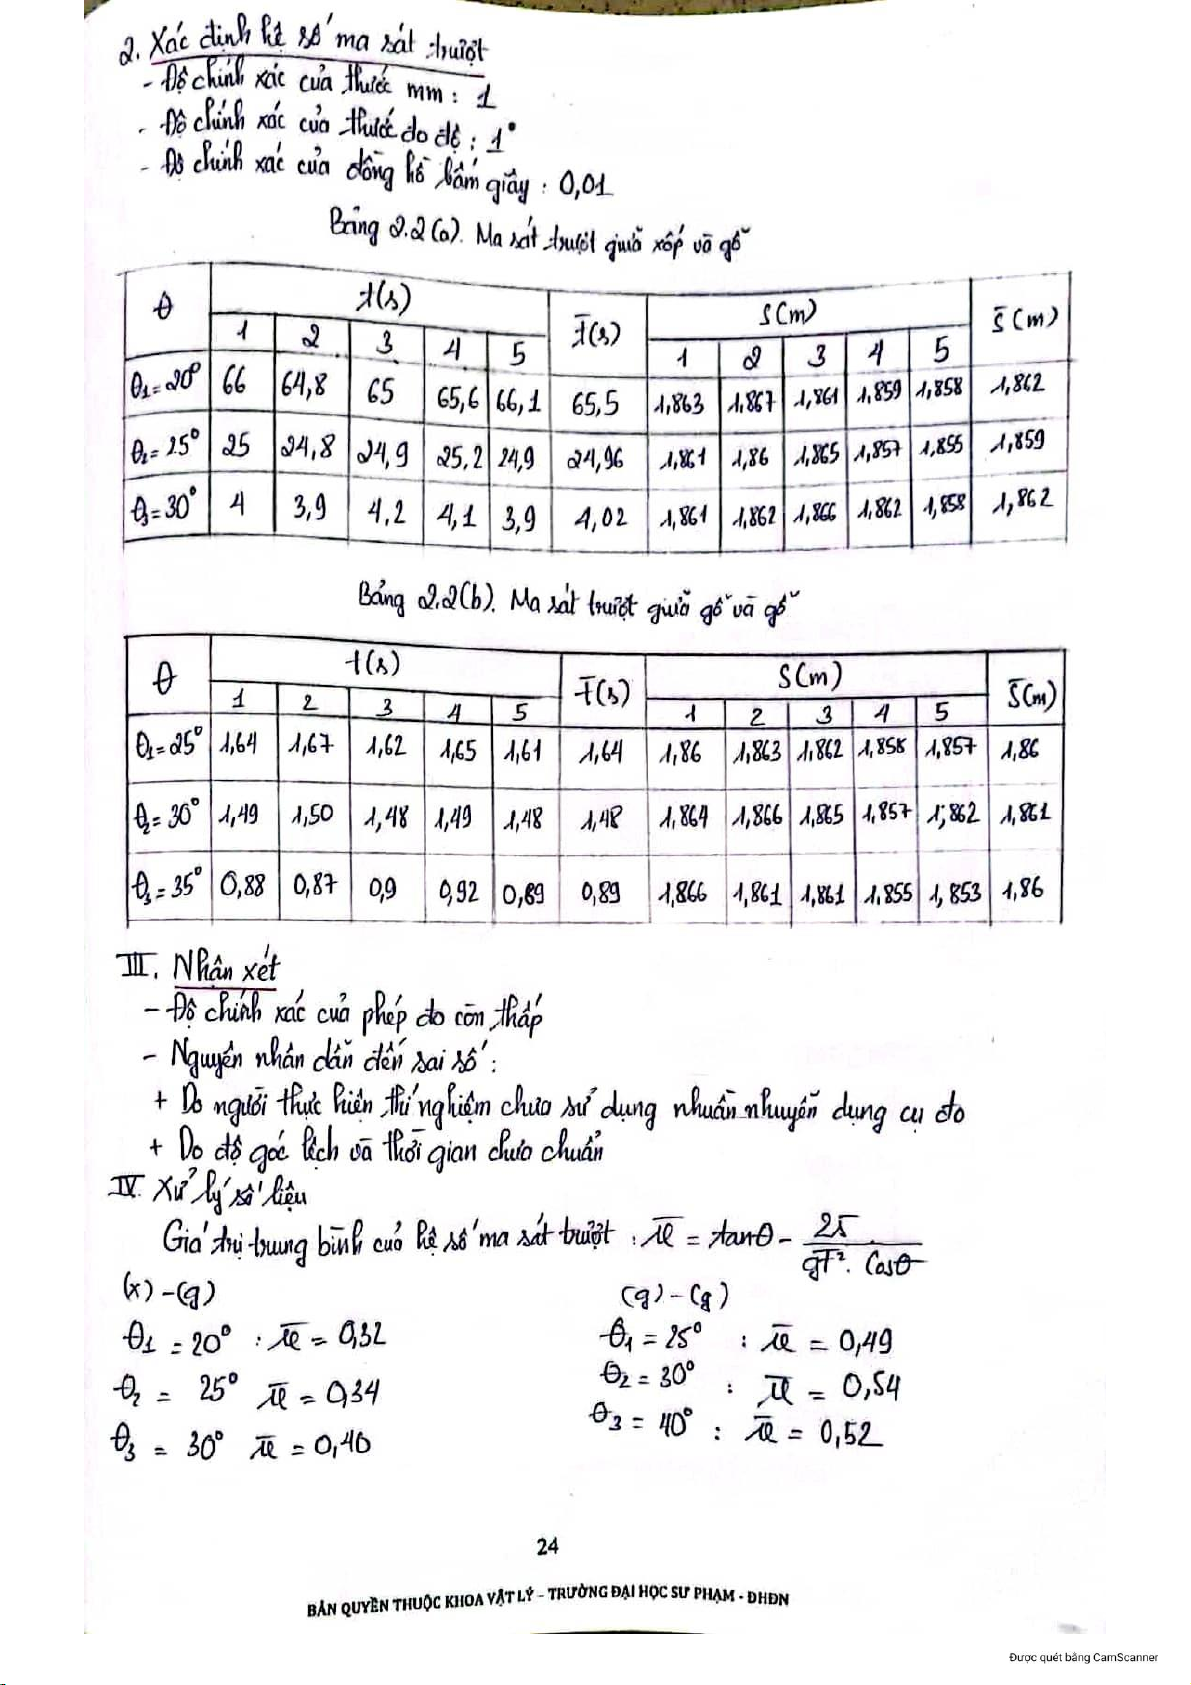 2. Xác định hệ số ma sát trượt
- Độ chính xác của thước mm : 1
- Độ chính xác của thước đo độ : 1°
- Độ chính xác của đồng hồ bấm giây : 0,01
Bảng 2.2(a). Ma sát trượt giữa xốp và gỗ
θ t(s) t̄(s) S(m) s̄(m)
1 2 3 4 5 1 2 3 4 5
θ₁=20° 66 64,8 65 65,6 66,1 65,5 1,863 1,867 1,861 1,859 1,858 1,862
θ₂=25° 25 24,8 24,9 25,2 24,9 24,96 1,861 1,86 1,865 1,857 1,855 1,859
θ₃=30° 4 3,9 4,2 4,1 3,9 4,02 1,861 1,862 1,866 1,862 1,858 1,862
Bảng 2.2(b). Ma sát trượt giữa gỗ và gỗ
θ t(s) t̄(s) S(m) S̄(m)
1 2 3 4 5 1 2 3 4 5
θ₁=25° 1,64 1,67 1,62 1,65 1,61 1,64 1,86 1,863 1,862 1,858 1,857 1,86
θ₂=30° 1,49 1,50 1,48 1,49 1,48 1,48 1,864 1,866 1,865 1,857 1,862 1,861
θ₃=35° 0,88 0,87 0,9 0,92 0,89 0,89 1,866 1,861 1,861 1,855 1,853 1,86
III. Nhận xét
- Độ chính xác của phép đo còn thấp
- Nguyên nhân dẫn đến sai số :
+ Do người thực hiện thí nghiệm chưa sử dụng nhuần nhuyễn dụng cụ đo
+ Do độ góc lệch và thời gian chưa chuẩn
IV. Xử lý số liệu
Giá trị trung bình của hệ số ma sát trượt : μ̄ = tanθ - 2s̄ / gt̄². cosθ
(x) - (g) (g) - (g)
θ₁ = 20° : μ̄ = 0,32 θ₁ = 25° : μ̄ = 0,49
θ₂ = 25° μ̄ = 0,34 θ₂ = 30° : μ̄ = 0,54
θ₃ = 30° μ̄ = 0,40 θ₃ = 40° : μ̄ = 0,52
24
BẢN QUYỀN THUỘC KHOA VẬT LÝ - TRƯỜNG ĐẠI HỌC SƯ PHẠM - ĐHĐN
Được quét bằng CamScanner